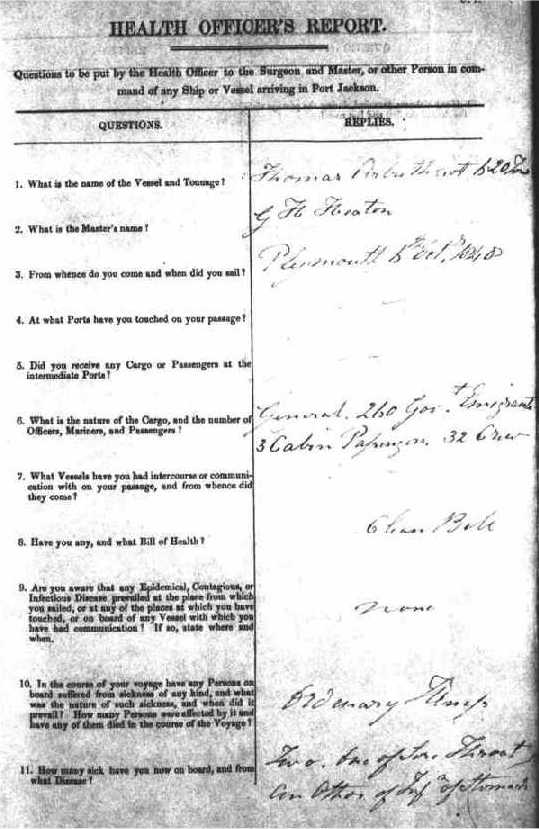 HEALTH OFFICER'S REPORT.
Questions to be put by the Health Officer to the Surgeon and Master, or other Person in com-
mand of any Ship or Vessel arriving in Port Jackson.
QUESTIONS.
REPLIES.
1. What is the name of the Vessel and Tonnage?
Thomas Arbuthnot 620 Tns
2. What is the Master's name?
G H Heaton
3. From whence do you come and when did you sail?
Plymouth Octr. 1848
4. At what Ports have you touched on your passage?
5. Did you receive any Cargo or Passengers at the
intermediate Ports?
6. What is the nature of the Cargo, and the number of
Officers, Mariners, and Passengers?
General. 260 Govt Emigrants
3 Cabin Passengers 32 Crew
7. What Vessels have you had intercourse or communi-
cation with on your passage, and from whence did
they come?
8. Have you any, and what Bill of Health?
Clean Bill
9. Are you aware that any Epidemical, Contagious, or
Infectious Disease prevailed at the place from which
you sailed, or at any of the places at which you have
touched, or on board of any Vessel with which you
have had communication? If so, state where and
when.
None
10. In the course of your voyage have any Persons on
board suffered from sickness of any kind, and what
was the nature of such sickness, and when did it
prevail? How many Persons were affected by it and
have any of them died in the course of the Voyage?
Ordinary
11. How many sick have you now on board, and from
what Disease?
Two. One of Sore Throat
An Other of of Stomach